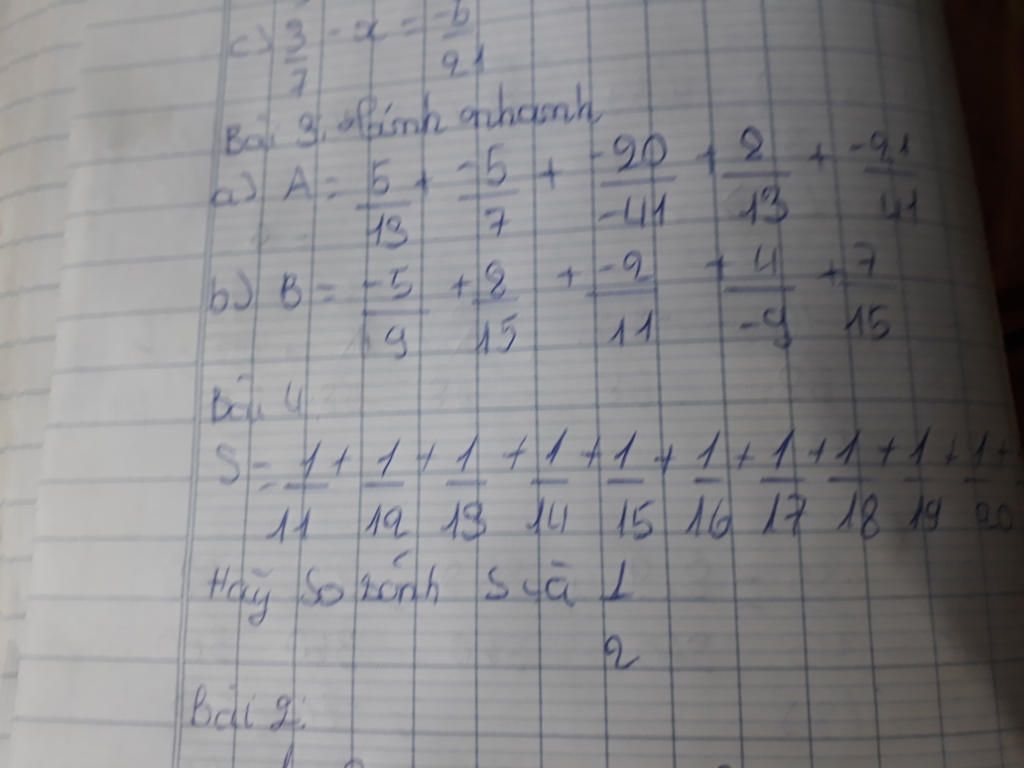 c) 3/7 - x = -6/21
Bài 3. Tính nhanh
a) A = 5/13 + -5/7 + -20/-41 + 8/13 + -21/41
b) B = -5/9 + 8/15 + -2/11 + 4/-9 + 7/15
Bài 4
S = 1/11 + 1/12 + 1/13 + 1/14 + 1/15 + 1/16 + 1/17 + 1/18 + 1/19 + 1/20
Hãy so sánh S và 1/2
Bài 2: